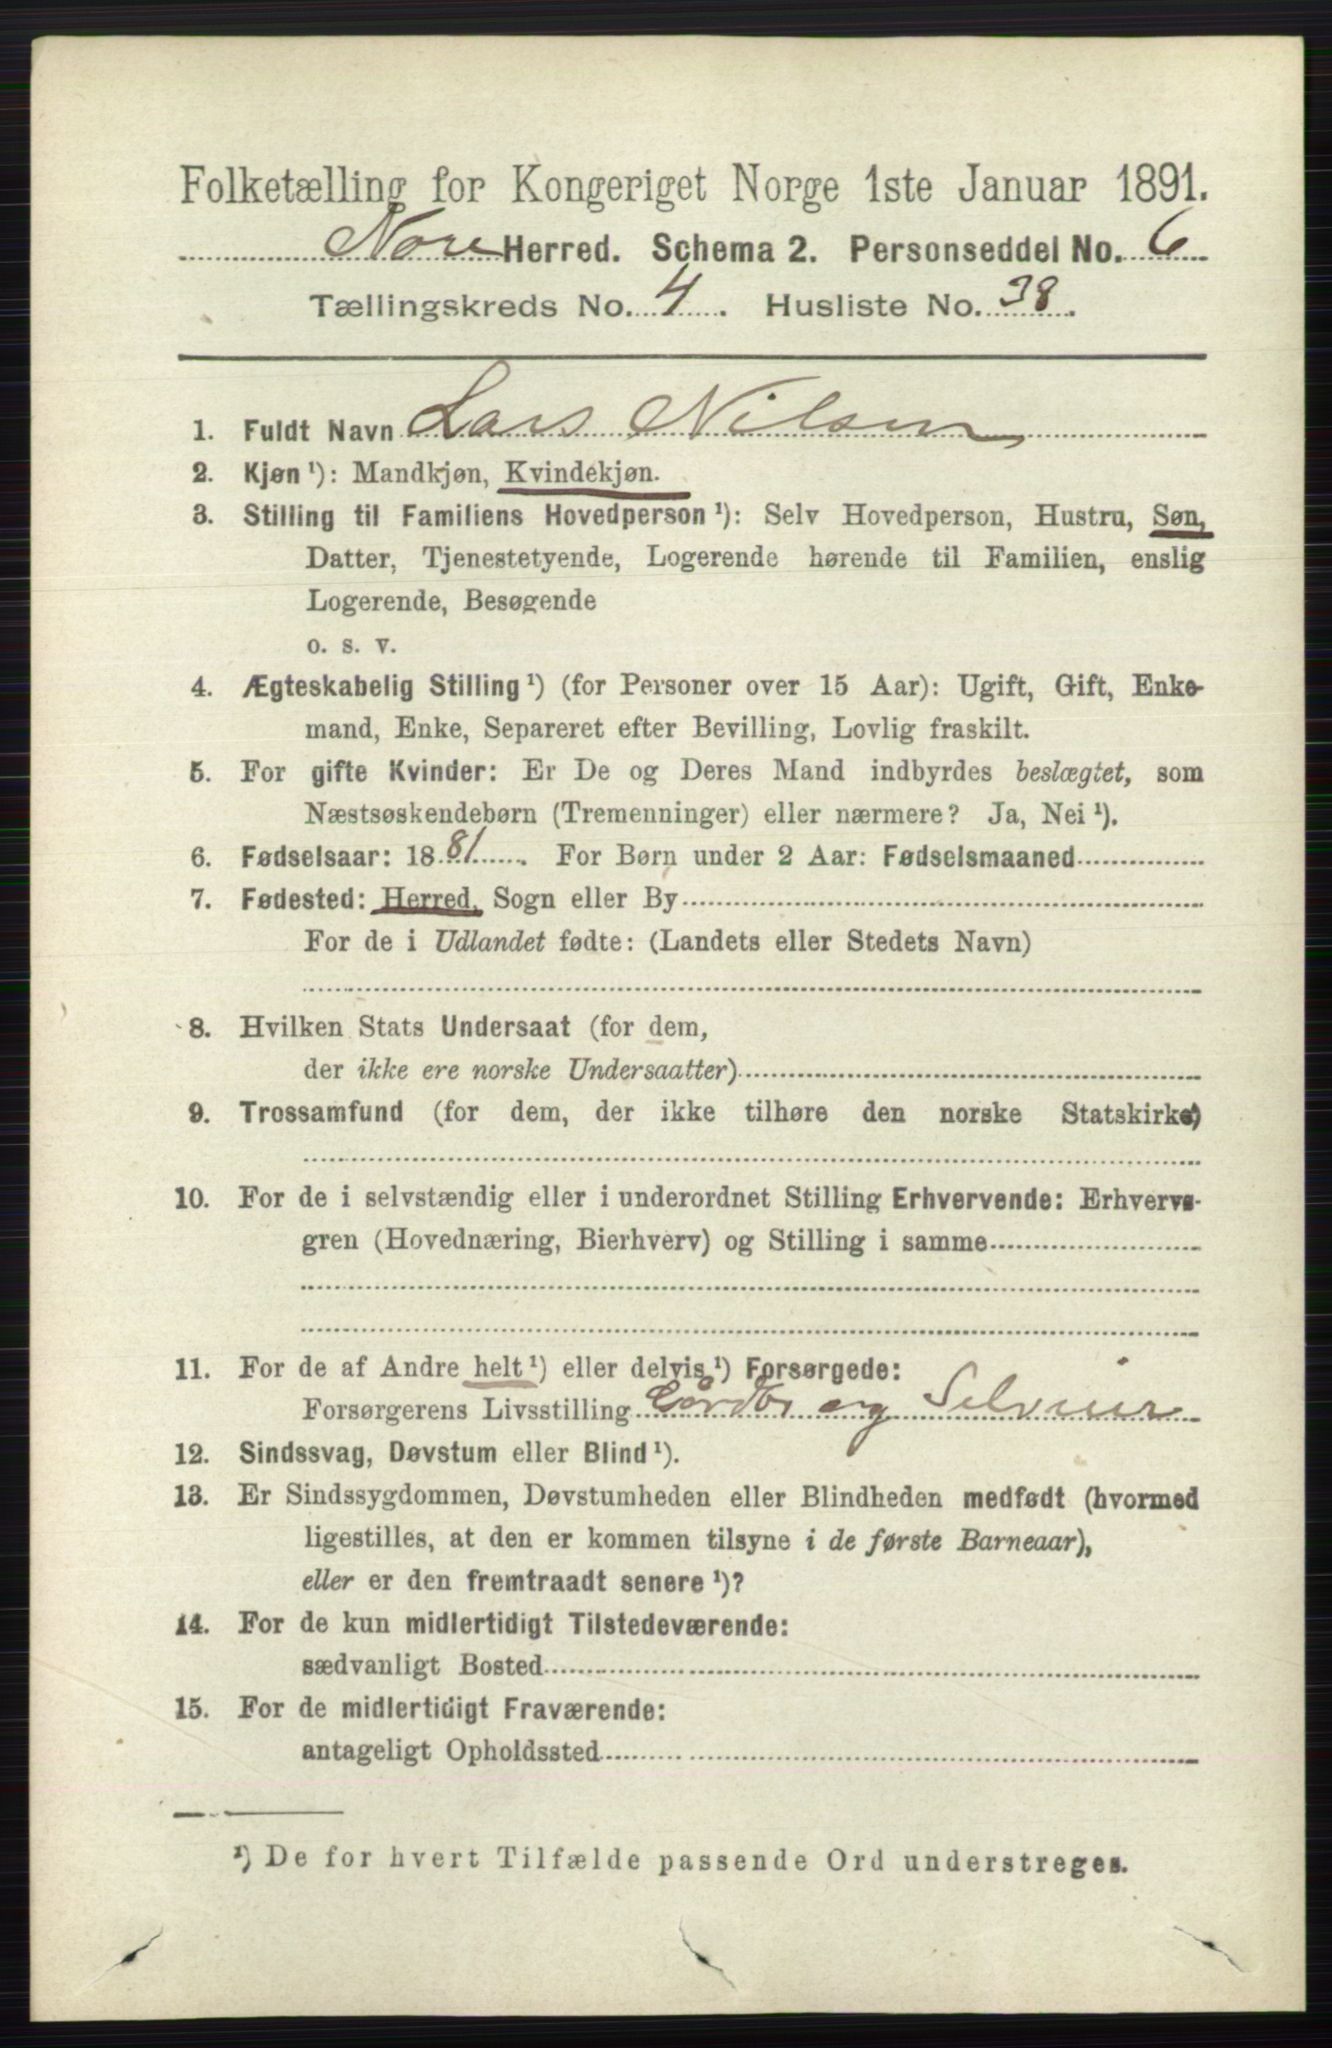 Folketælling for Kongeriget Norge 1ste Januar 1891.
Nore Herred. Schema 2. Personseddel No. 6
Tællingskreds No. 4. Husliste No. 38.
1. Fuldt Navn Lars Nilsen
2. Kjøn ¹): Mandkjøn, Kvindekjøn.
3. Stilling til Familiens Hovedperson ¹): Selv Hovedperson, Hustru, Søn,
Datter, Tjenestetyende, Logerende hørende til Familien, enslig
Logerende, Besøgende
o. s. v.
4. Ægteskabelig Stilling ¹) (for Personer over 15 Aar): Ugift, Gift, Enke-
mand, Enke, Separeret efter Bevilling, Lovlig fraskilt.
5. For gifte Kvinder: Er De og Deres Mand indbyrdes beslægtet, som
Næstsøskendebørn (Tremenninger) eller nærmere? Ja, Nei ¹).
6. Fødselsaar: 1881. For Børn under 2 Aar: Fødselsmaaned
7. Fødested: Herred, Sogn eller By
For de i Udlandet fødte: (Landets eller Stedets Navn)
8. Hvilken Stats Undersaat (for dem,
der ikke ere norske Undersaatter)
9. Trossamfund (for dem, der ikke tilhøre den norske Statskirke)
10. For de i selvstændig eller i underordnet Stilling Erhvervende: Erhvervs-
gren (Hovednæring, Bierhverv) og Stilling i samme
11. For de af Andre helt ¹) eller delvis ¹) Forsørgede:
Forsørgerens Livsstilling Gårdbr og Selveier
12. Sindssvag, Døvstum eller Blind ¹).
13. Er Sindssygdommen, Døvstumheden eller Blindheden medfødt (hvormed
ligestilles, at den er kommen tilsyne i de første Barneaar),
eller er den fremtraadt senere ¹)?
14. For de kun midlertidigt Tilstedeværende:
sædvanligt Bosted
15. For de midlertidigt Fraværende:
antageligt Opholdssted
¹) De for hvert Tilfælde passende Ord understreges.